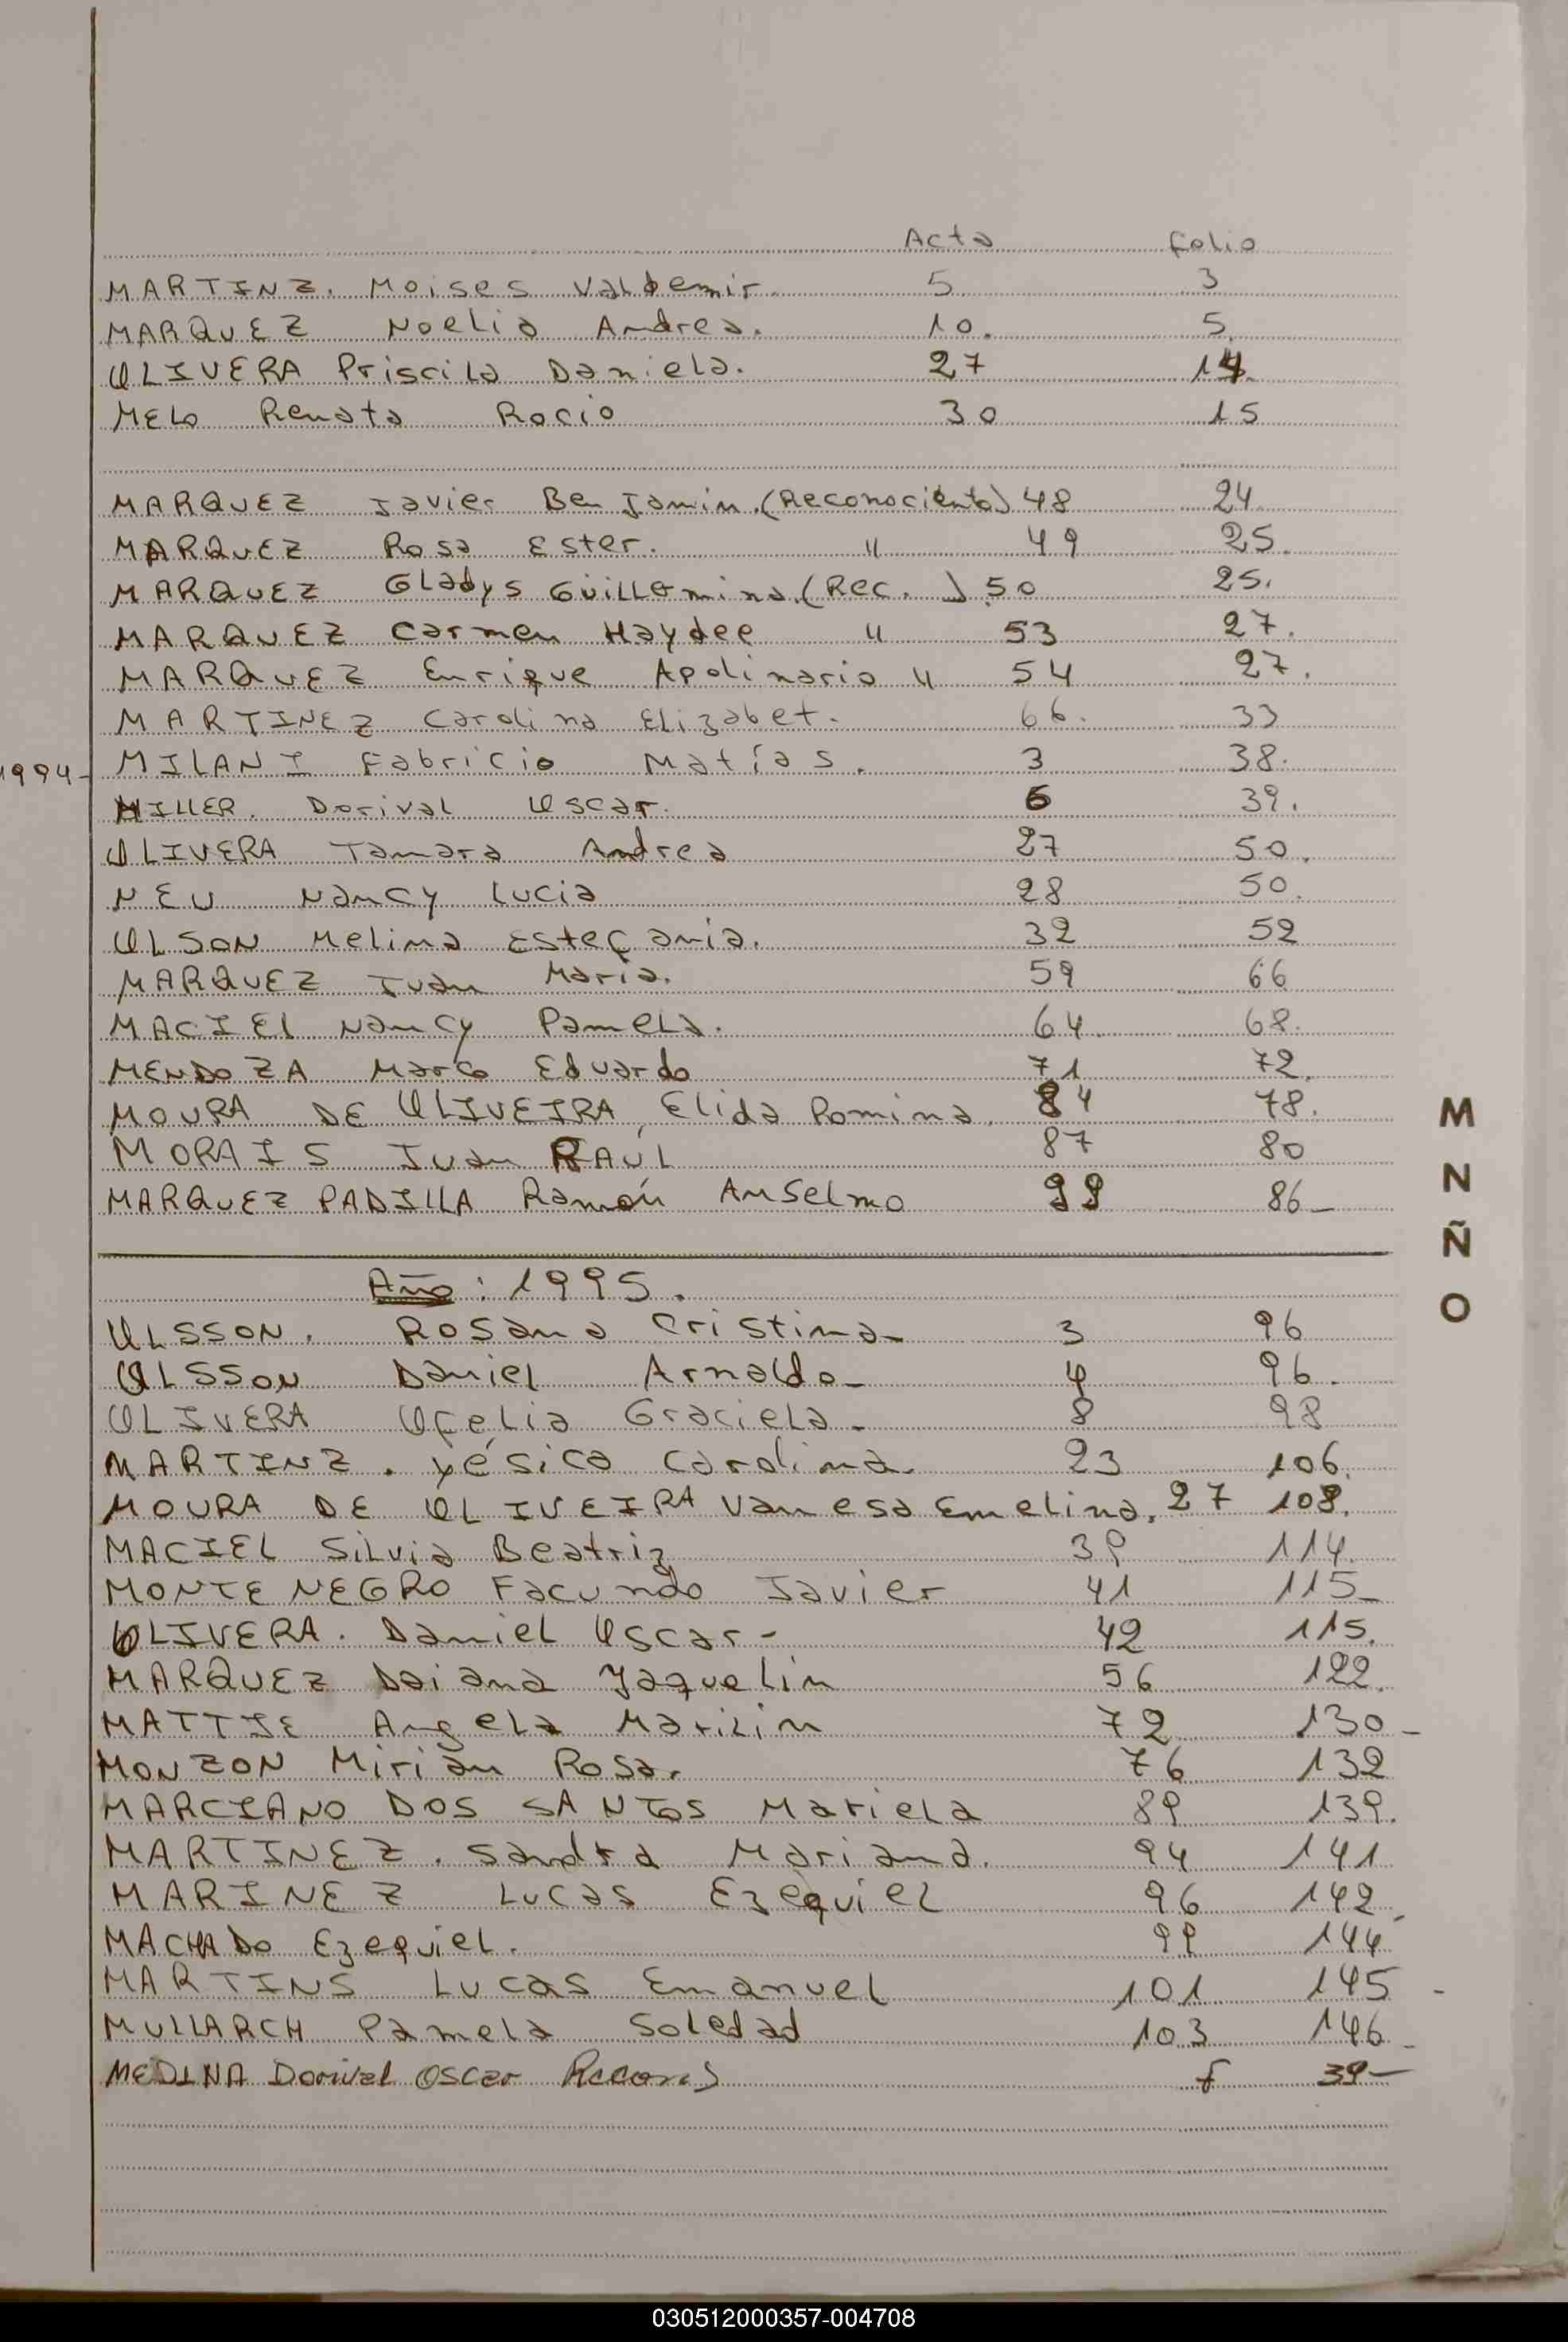 Acta Folio
MARTINZ. Moises Valdemir. 5 3
MARQUEZ Noelia Andrea. 10. 5.
OLIVERA Priscila Daniela. 27 14.
MELO Renata Rocio 30 15
MARQUEZ Javier Benjamin. (Reconociento) 48 24.
MARQUEZ Rosa Ester. " 49 25.
MARQUEZ Gladys Guillermina. (Rec. ) 50 25.
MARQUEZ Carmen Haydee " 53 27.
MARQUEZ Enrique Apolinario " 54 27.
MARTINEZ Carolina Elizabet. 66. 33
1994- MILANI Fabricio Matías. 3 38.
MILLER. Dorival Oscar. 6 39.
OLIVERA Tamara Andrea 27 50.
NEU Nancy Lucia 28 50.
OLSON Melina Estefania. 32 52
MARQUEZ Juan Maria. 59 66
MACIEL Nancy Pamela. 64. 68.
MENDOZA Marco Eduardo 71 72.
MOURA DE OLIVEIRA, Elida Romina. 84 78.
MORAIS Juan RAÚL 87 80
MARQUEZ PADILLA Ramón Anselmo 99 86-
Año: 1995.
OLSSON. Rosana Cristina- 3 96
OLSSON Daniel Arnaldo- 4 96.
OLIVERA Ofelia Graciela- 8 98
MARTINZ. Yésica Carolina. 23 106.
MOURA DE OLIVEIRA Vanesa Emelina. 27 108.
MACIEL Silvia Beatriz 39 114.
MONTENEGRO Facundo Javier 41 115-
OLIVERA. Daniel Oscar- 42 115.
MARQUEZ Daiana Jaquelin 56 122.
MATTJE Angela Marilin 72 130-
MONZON Mirian Rosa. 76 132
MARCIANO DOS SANTOS Mariela 89 139.
MARTINEZ. Sandra Mariana. 94 141
MARINEZ Lucas Ezequiel 96 142
MACHADO Ezequiel. 99 144
MARTINS Lucas Emanuel 101 145 -
MULLARCH Pamela Soledad 103 146-
MEDINA Dorival Oscar 39-
M
N
Ñ
O
030512000357-004708